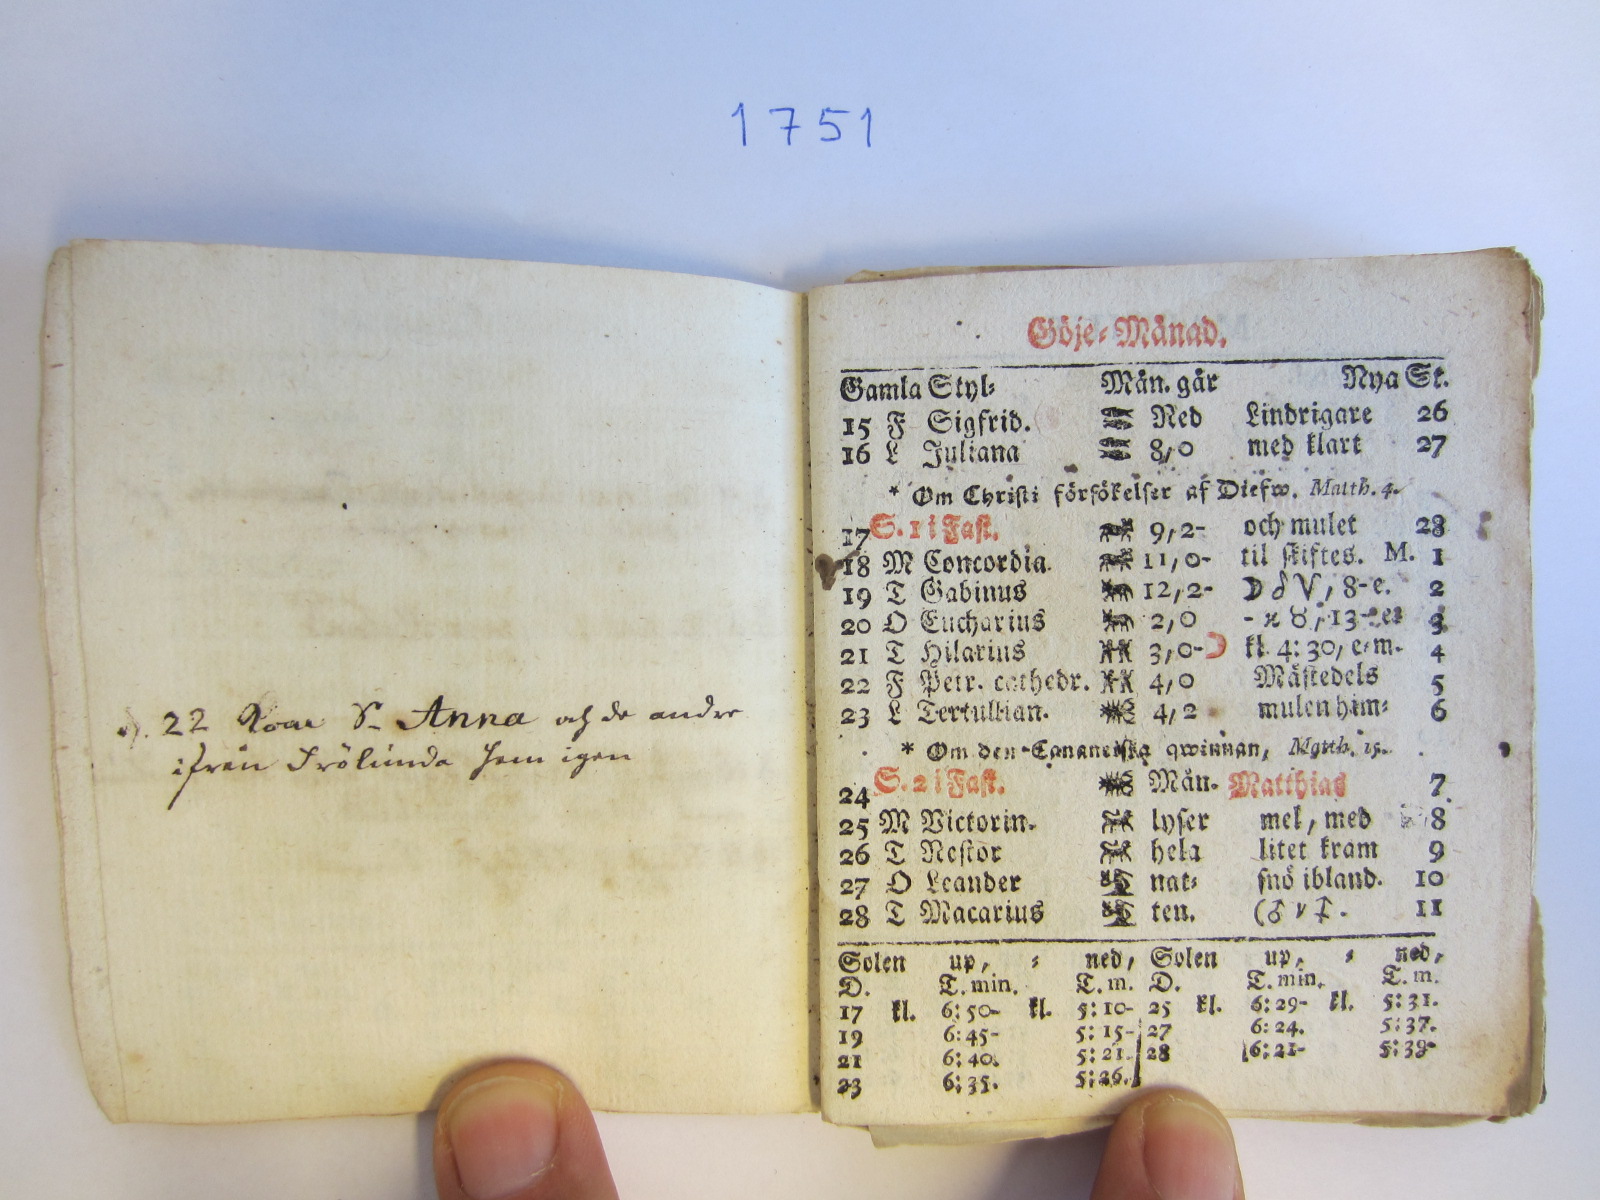 1751
22 Kom S. Anna och de andre
ifrån Frölunda hem igen
Göje-Månad.
Gamla Styl- Mån. går Nya St.
15 F Sigfrid. Ned Lindrigare 26
16 L Juliana 8,0 med klart 27
* Om Christi försökelser af Diefw. Matth. 4.
17 S. 1 i Fast. 9,2- och mulet 28
18 M Concordia. 11,0- til skiftes. M. 1
19 T Gabinus 12,2- ☽ ☌ V, 8-e. 2
20 O Eucharius 2,0 - ♉, 13- 3
21 T Hilarius 3,0- ☽ kl. 4:30, e.m. 4
22 F Petr. cathedr. 4,0 Mästedels 5
23 L Tertullian. 4,2 mulen him- 6
* Om den Cananeiska qwinnan, Matth. 15.
24 S. 2 i Fast. Mån- Matthias 7
25 M Victorin. lyser mel, med 8
26 T Nestor hela litet kram 9
27 O Leander nat- snö ibland. 10
28 T Macarius ten. 11
Solen up, - ned, Solen up, - ned,
D. T. min. T. m. D. T. min. T. m.
17 kl. 6:50- kl. 5:10- 25 kl. 6:29- kl. 5:31.
19 6:45- 5:15- 27 6:24. 5:37.
21 6:40. 5:21. 28 6:21- 5:39-
23 6:35. 5:26.